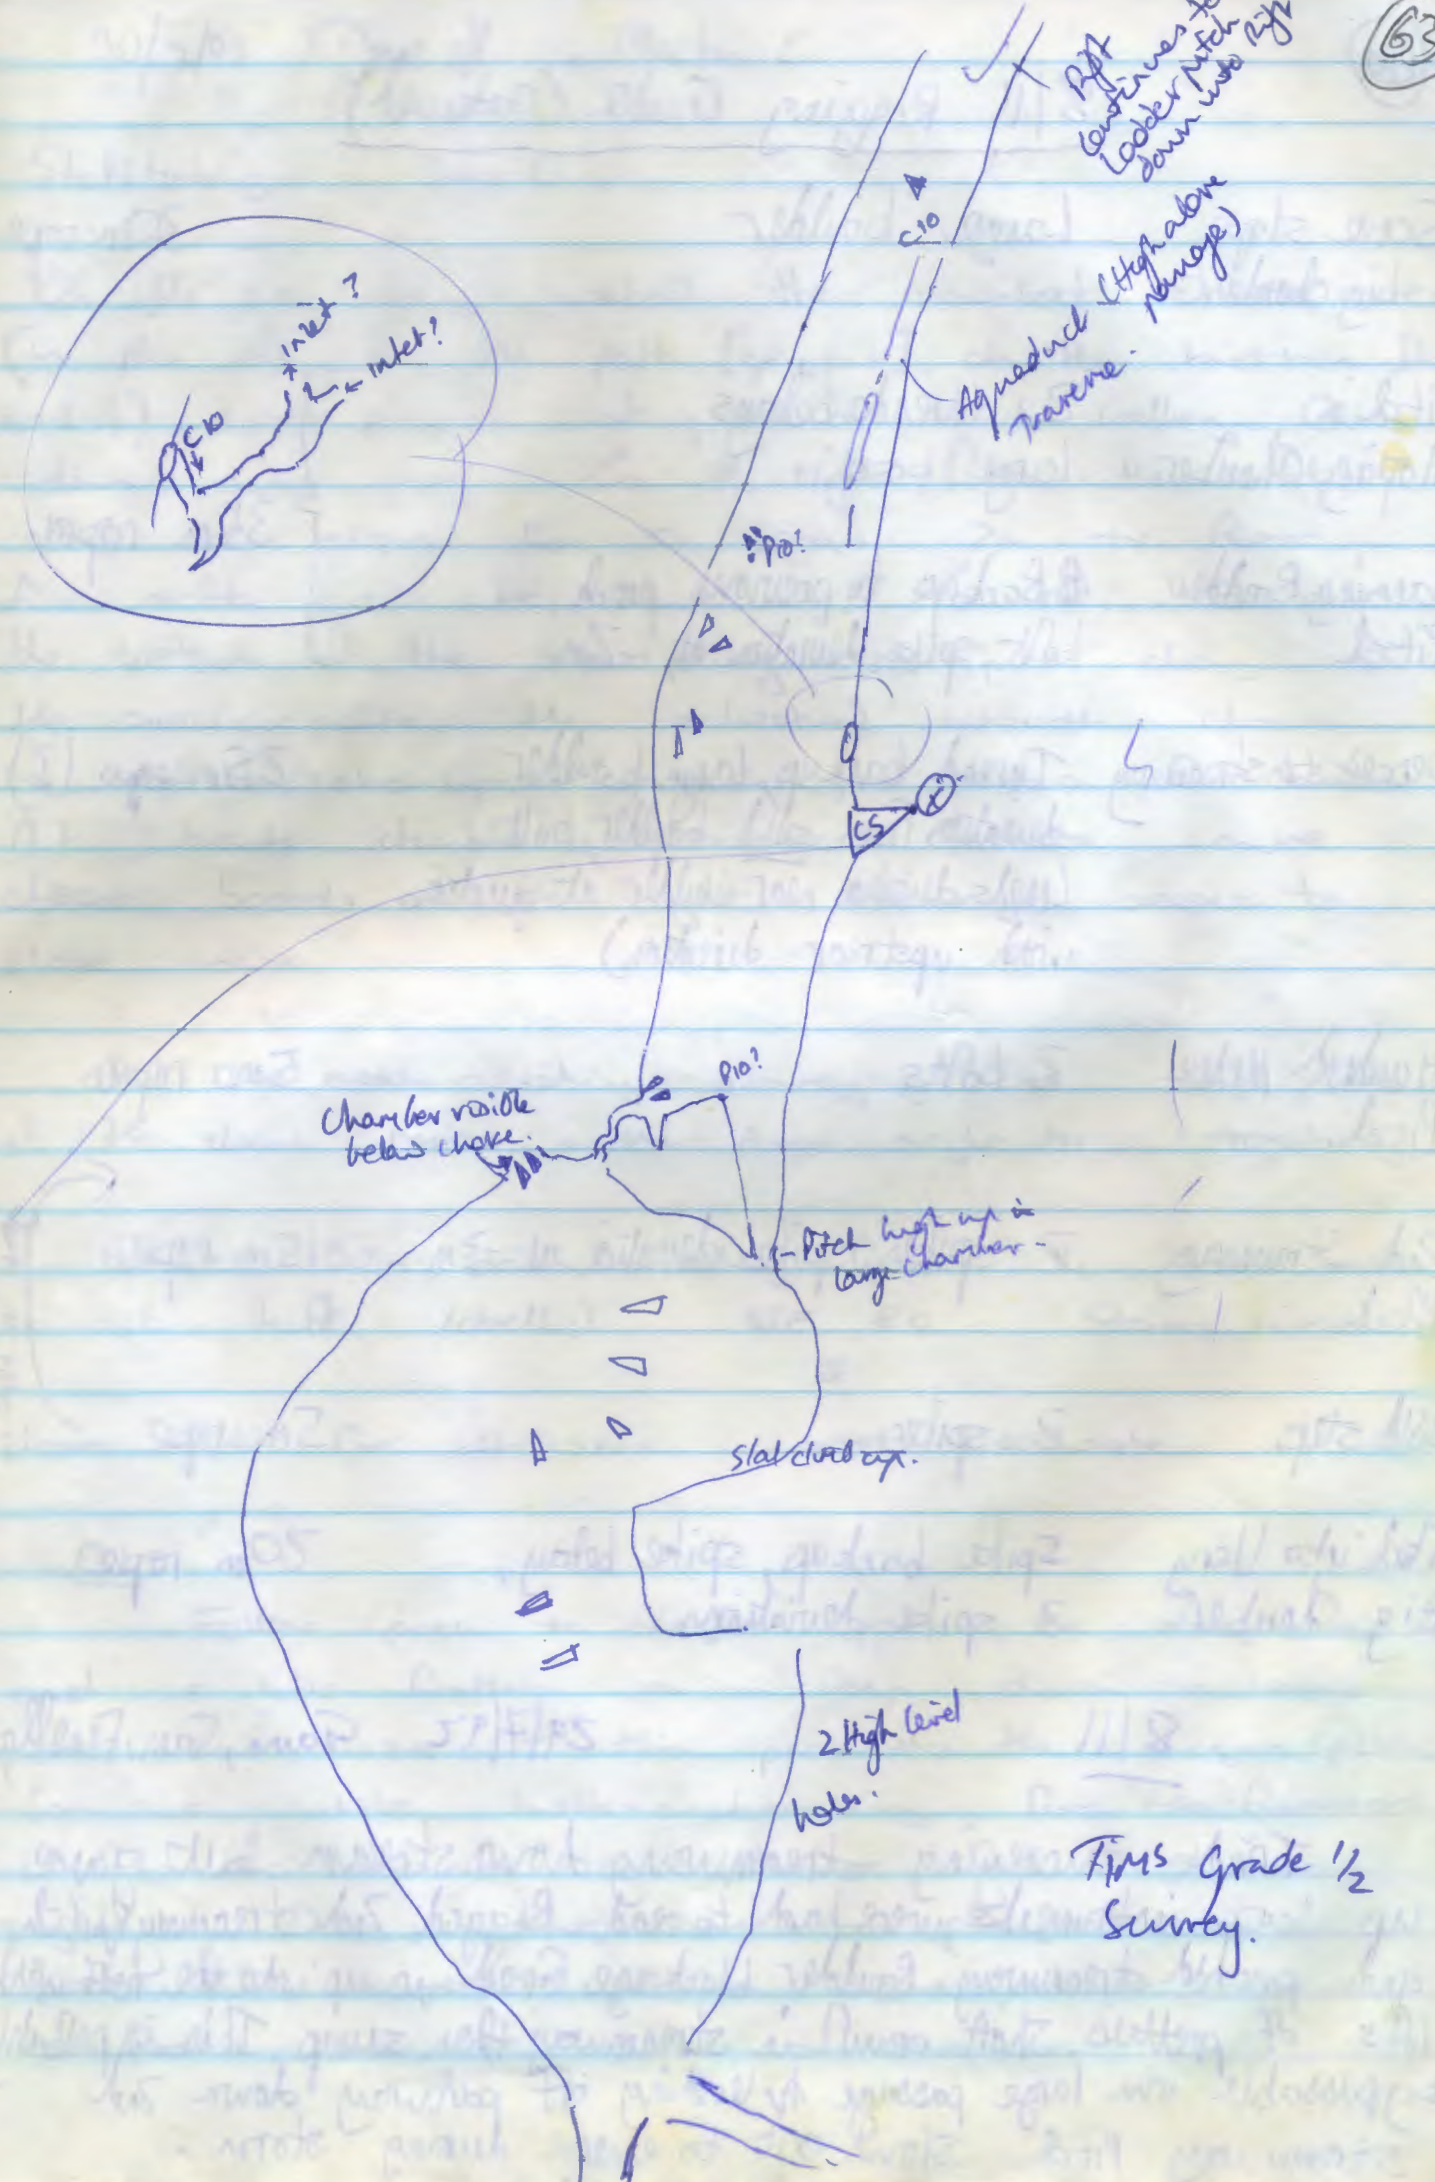 63
Rift
Continues to
Ladder pitch
down into Rift
C10
Aqueduct (High above
passage)
Traverse.
Inlet?
Inlet?
C10
P10?
C5
P10?
Chamber visible
below choke.
Pitch high up in
large chamber.
Slab climb up.
2 High level
holes.
Tims Grade 1/2
Survey.